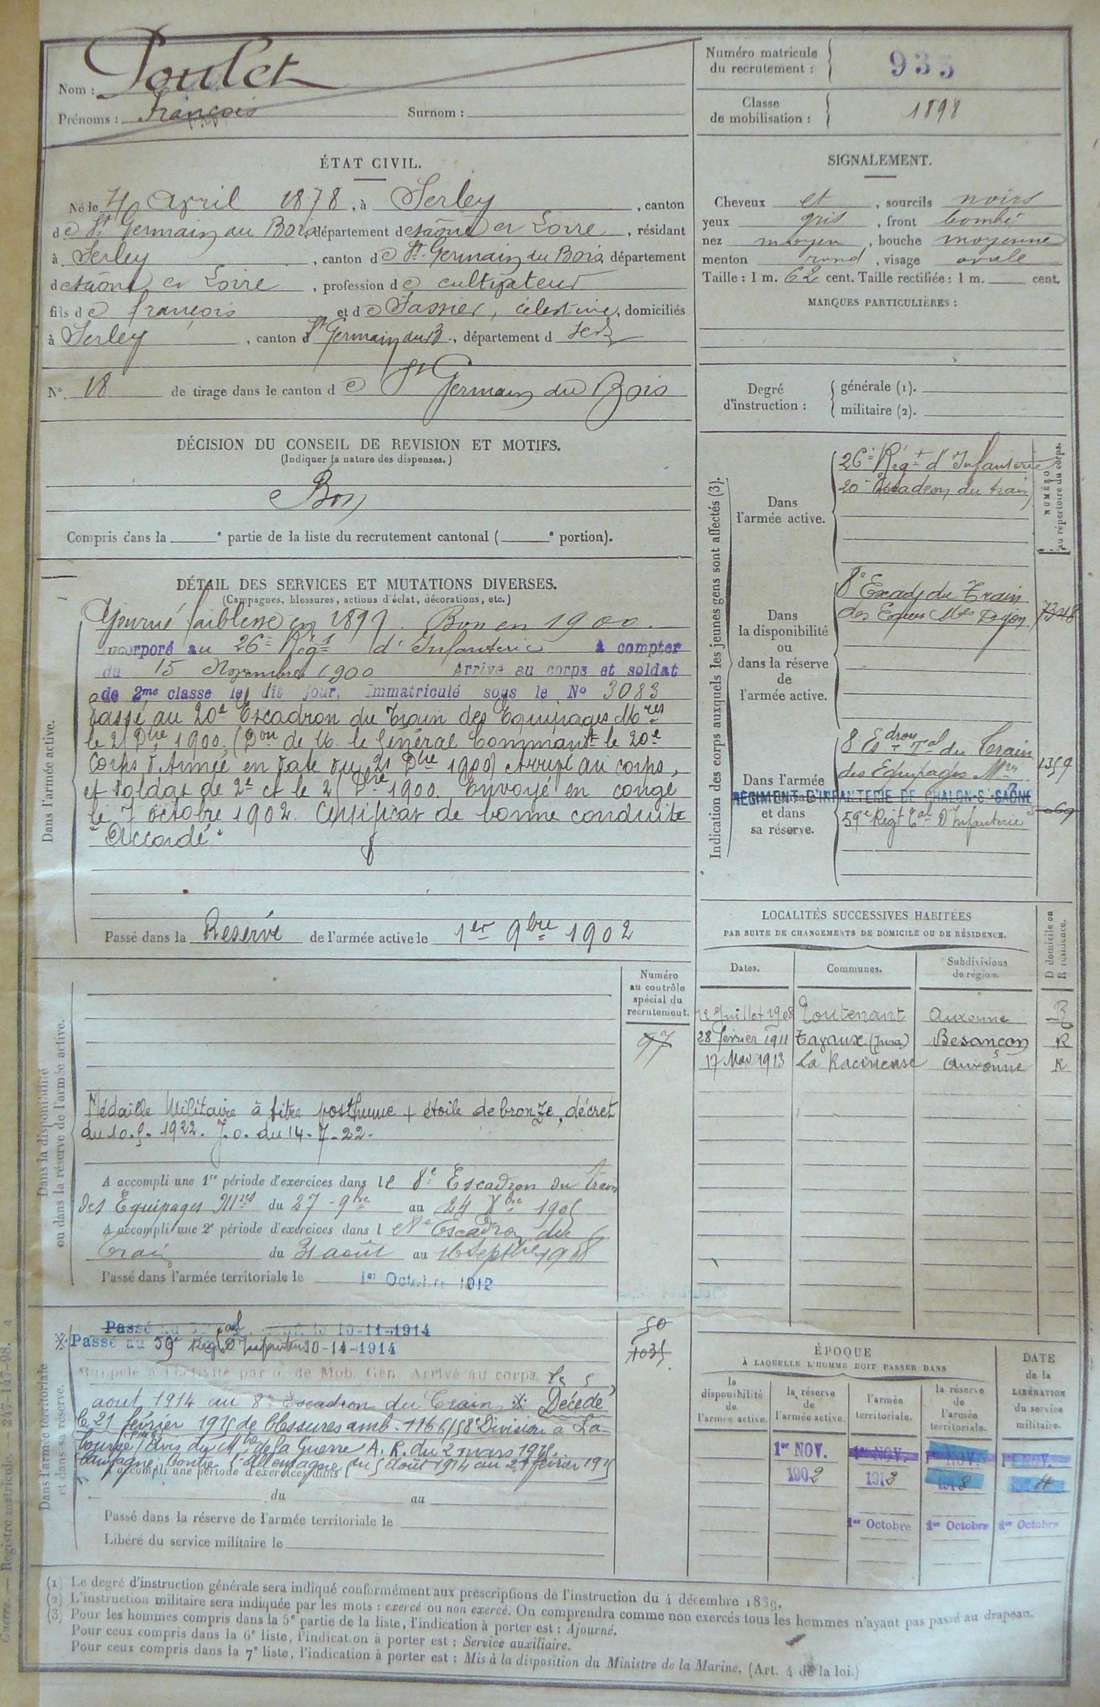 Nom : Poulet
Prénoms : François Surnom :
Numéro matricule du recrutement : 935
Classe de mobilisation : 1898
ÉTAT CIVIL.
Né le avril 1878, à Serley, canton
de St Germain du Bois, département de Saône et Loire, résidant
à Serley, canton de St Germain du Bois, département
de Saône et Loire, profession de cultivateur
fils de françois et de célestine, domiciliés
à Serley, canton d St Germain du B., département d
No. 18 de tirage dans le canton de St Germain du Bois
DÉCISION DU CONSEIL DE REVISION ET MOTIFS.
(Indiquer la nature des dispenses.)
Bon
Compris dans la e partie de la liste du recrutement cantonal ( e portion).
SIGNALEMENT.
Cheveux et, sourcils noirs
yeux gris, front bombé
nez moyen, bouche moyenne
menton rond, visage ovale
Taille : 1 m. 62 cent. Taille rectifiée : 1 m. cent.
MARQUES PARTICULIÈRES :
Degré d'instruction : générale (1).
militaire (2).
DÉTAIL DES SERVICES ET MUTATIONS DIVERSES.
(Campagnes, blessures, actions d'éclat, décorations, etc.)
Dans l'armée active.
Ajourné faiblesse en 1899. Bon en 1900.
Incorporé au 26e Régt d'Infanterie à compter
du 15 Novembre 1900 Arrivé au corps et soldat
de 2me classe le dit jour, Immatriculé sous le No 3083
Passé au 20e Escadron du Train des Equipages Mres
le 21 Dbre 1900, (Don de M. le Général Commandt le 20e
Corps d'Armée en date du 21 Dbre 1900) Arrivé au corps,
et soldat de 2e cl le 21 Dbre 1900. Envoyé en congé
le 7 octobre 1902. Certificat de bonne conduite
"Accordé"
Passé dans la Réserve de l'armée active le 1er 9bre 1902
Indication des corps auxquels les jeunes gens sont affectés (3).
NUMÉRO au répertoire du corps.
Dans l'armée active.
26e Régt d'Infanterie
20e Escadron du train
Dans la disponibilité ou dans la réserve de l'armée active.
8e Escadn du Train
des Equip Mres Dijon
Dans l'armée territoriale et dans sa réserve.
8e Esdron Tal du Train
des Equipages Mres 1359
RÉGIMENT D'INFANTERIE DE CHALON-S-SAÔNE
59e Régt Tal D'Infanterie
LOCALITÉS SUCCESSIVES HABITÉES
PAR SUITE DE CHANGEMENTS DE DOMICILE OU DE RÉSIDENCE.
Dates. Communes. Subdivisions de région. D domicile ou R résidence.
12 Juillet 1908 Toutenant Auxonne R
28 février 1911 Tavaux (Jura) Besançon R
17 Mai 1913 La Racineuse Auxonne R
Dans la disponibilité ou dans la réserve de l'armée active.
Numéro au contrôle spécial du recrutement.
97
Médaille Militaire à titre posthume + étoile de bronze, décret
du 10.5.1922. J.O. du 14-7-22-
A accompli une 1re période d'exercices dans le 8e Escadron du train
des Equipages Mres du 27-9bre au 24 Xbre 1905
A accompli une 2e période d'exercices dans l e 8e Escadron du
Train du 31 août au 16 Septbre 1908
Passé dans l'armée territoriale le 1er Octobre 1912
Dans l'armée territoriale et dans sa réserve.
Passé au 10-11-1914
Passé au 59e Régt Tal D'Infanterie 10-14-1914
Rappelé à l'activité par o. de Mob. Gen. Arrivé au corps le 5
août 1914 au 8e Escadron du Train. Décédé
le 21 février 1915 de blessures amb. 1166/58e Division à La-
bourse (Avis du Mre de la Guerre A. R. du 2 mars 1915
Campagne contre l'allemagne du 5 août 1914 au 21 février 1915
A accompli une période d'exercices dans
du au
Passé dans la réserve de l'armée territoriale le
Libéré du service militaire le
ÉPOQUE
À LAQUELLE L'HOMME DOIT PASSER DANS
la disponibilité de l'armée active.
la réserve de l'armée active.
l'armée territoriale.
la réserve de l'armée territoriale.
DATE DE LA LIBÉRATION du service militaire.
1er NOV. 1er NOV. 1er NOV. 1er NOV.
1902 1913
1er Octobre 1er Octobre 1er Octobre
(1) Le degré d'instruction générale sera indiqué conformément aux prescriptions de l'instruction du 4 décembre 1889.
(2) L'instruction militaire sera indiquée par les mots : exercé ou non exercé. On comprendra comme non exercés tous les hommes n'ayant pas passé au drapeau.
(3) Pour les hommes compris dans la 5e partie de la liste, l'indication à porter est : Ajourné.
Pour ceux compris dans la 6e liste, l'indication à porter est : Service auxiliaire.
Pour ceux compris dans la 7e liste, l'indication à porter est : Mis à la disposition du Ministre de la Marine. (Art. 4 de la loi.)
Guerre. — Registre matricule. 347-147-98.